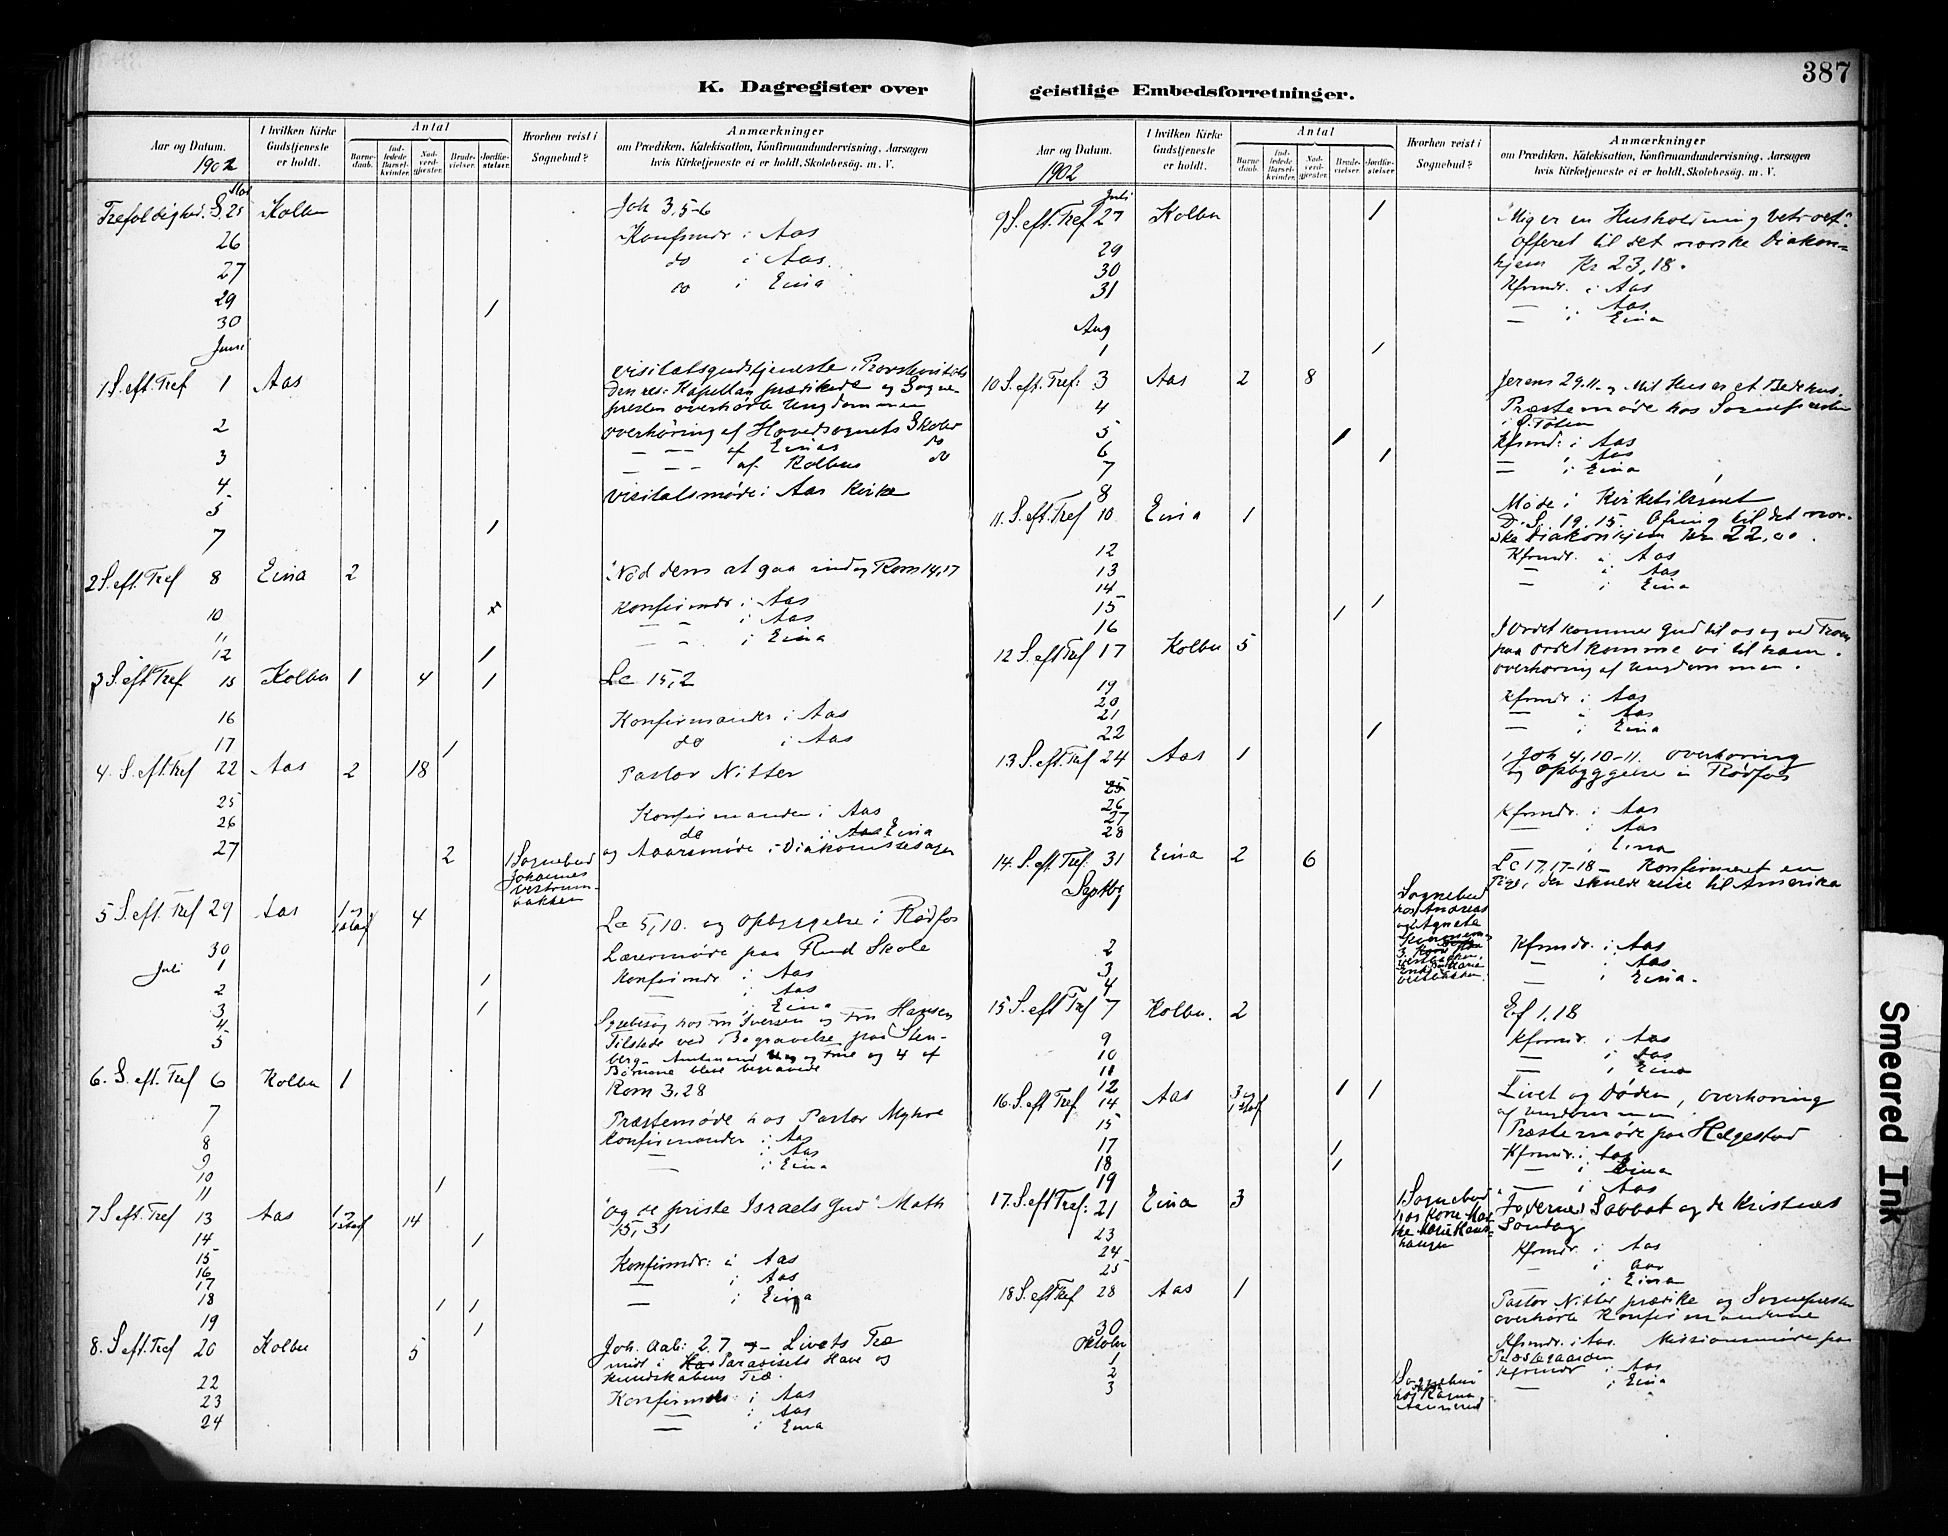 387
K. Dagregister over geistlige Embedsforretninger.
Aar og Datum. 1902
I hvilken Kirke Gudstjeneste er holdt.
Antal
Barnedaab.
Indledede Barselkvinder.
Nadverdgjester.
Brudevielser.
Jordfæstelser.
Hvorhen reist i Sognebud?
Anmærkninger
om Prædiken, Katekisation, Konfirmandundervisning, Aarsagen
hvis Kirketjeneste ei er holdt, Skolebesøg, m. V.
Mai
Trefoldighed. S. 25 Kolbu Joh 3,5-6
26 Konfrmdr i Aas
27 do i Aas
29 do i Eina
30 1
Juni
1 S. eft. Tref 1 Aas Visitatsgudstjeneste i
Den res: Kapellan prædikede og Sogne-
presten overhørte Ungdommen
2 overhøring af Hovedsognets Skoler
3 — — af Einas do
4 — — af Kolbus do
5 Visitatsmøde i Aas Kirke
7 1
2 S. eft Tref 8 Eina 2 "Nød dem at gaa ind og Rom 14,17
10 x Konfirmdr i Aas
11 — — i Aas
12 1 — — i Eina
3 S. eft Tref 15 Kolbu 1 4 1 Lc 15,2
16 Konfirmander i Aas
17 1 do i Aas
4. S. eft. Tref 22 Aas 2 18 Pastor Nitter
25 Konfirmander i Aas
26 do i Aas Eina
27 2 1 Sognebud
Johannes
bakken
og Aarsmøde i Diakonissesagen
5 S. eft Tref 29 Aas 1 og 4 Lc 5,10. og Opbyggelse i Rødfos
30 Lærermøde paa Rud Skole
Juli 1 Konfirmdr i Aas
2 1 — i Aas
3 1 — i Eina
4 Sygebesøg hos Fru Iversen og Fru Hansen
5 Tilstede ved Begravelse paa Sten-
berg. Amtmand og Frue og 4 af
Børnene bleve begravede
6. S. eft. Tref 6 Kolbu 1 Rom 3,28
7 Præstemøde hos Pastor
8 Konfirmander i Aas
9 — i Aas
10 — i Eina
11 1
7 S eft. Tref 13 Aas 14 "og de priste Israels Gud" Math
14 1 15,31
15 Konfirmdr: i Aas
16 — i Aas
17 — i Eina
18 1 1
19 1
8. S eft. Tref 20 Kolbu 5 Joh. Aab: 2.7 — Livets Træ
midt i Paradisets Have og
Kundskabens Træ.
22 Konfirmdr: i Aas
23 — i Aas
24 — i Eina
Aar og Datum. 1902
I hvilken Kirke Gudstjeneste er holdt.
Antal
Barnedaab.
Indledede Barselkvinder.
Nadverdgjester.
Brudevielser.
Jordfæstelser.
Hvorhen reist i Sognebud?
Anmærkninger
om Prædiken, Katekisation, Konfirmandundervisning, Aarsagen
hvis Kirketjeneste ei er holdt, Skolebesøg, m. V.
Juli
9 S. eft. Tref 27 Kolbu 1 "Mig er en Husholdning betroet".
Offeret til det norske Diakon-
hjem Kr 23,18.
29 Kfrmdr. i Aas
30 — i Aas
31 — i Eina
Aug
1 1
10 S. eft. Tref: 3 Aas 2 8 Jerem 29.11. og Mit Hus er et Bedehus.
4 Præstemøde hos Sognepresten
i Ø. Toten
5 1 Kfrmd: i Aas
6 1 — i Aas
7 — i Eina
8 Møde i Kirketilsynet
11. S. eft. Tref 10 Eina 1 D. S. 19.15. Ofring til det nor-
ske Diakonhjem Kr 22,00.
12 Kfrmdr. i Aas
13 — i Aas
14 — i Eina
15 1 1
16
12 S. eft Tref 17 Kolbu 5 I Ordet kommer Gud til os og ved Troen
paa Ordet komme vi til ham.
overhøring af Ungdommen.
19 Kfrmdr. i Aas
20 — i Aas
21 — i Eina
22 1
13 S. eft. Tref 24 Aas 1 1 Joh 4,10-11. overhøring
og Opbyggelse i Rødfos
25
26 Kfrmdr. i Aas
27 — i Aas
28 — i Eina
14. S. eft. Tref. 31 Eina 2 6 Lc 17,17-18 — Konfirmeret en
Pige, der skulde reise til Amerika
Septbr
1 Sognebud
hos Andreas
og Agnete
2 Kfrmdr. i Aas
3 — i Aas
4 — i Eina.
15 S. eft Tref 7 Kolbu. 2 Ef 1,18
9 Kfrmdr. i Aas
10 — i Aas
11 — i Eina
12 1 1
16. S. eft Tref 14 Aas 3 og Livet og Døden, overhøring
af Ungdommen.
15 Præstemøde paa Helgestad
17 1 Kfrmdr. i Aas
18 1 — i Eina
19 — i Aas
17. S. eft Tref: 21 Eina 3 1 Sognebud
Jødernes Sabbat og de Kristnes
Søndag
23 Kfrmdr. i Aas
24 — i Aas
25 — i Eina
18 S. eft Tref 28 Aas 1 Pastor Nitter prædike og Sognepresten
overhørte Konfirmanderne
30 Kfrmdr. i Aas. Missionsmøde paa
Præstegaarden
Oktober
1 Kfrmdr i Aas
2 — i Eina
3 Sognebud
hos Karna
Smeared Ink